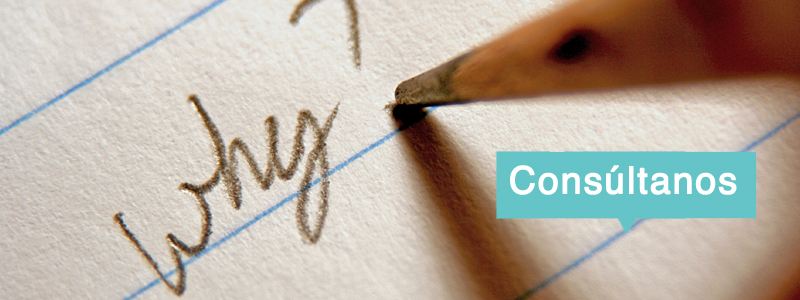 why?
Consúltanos